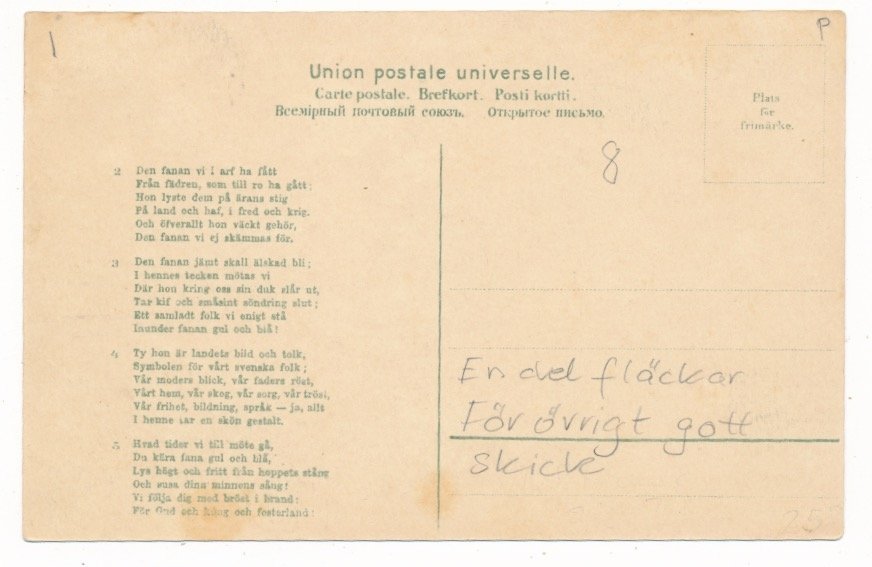 1
P
Union postale universelle.
Carte postale. Brefkort. Posti kortti.
Всемiрный почтовый союзъ. Открытое письмо.
Plats
för
frimärke.
8
2 Den fanan vi i arf ha fått
Från fädren, som till ro ha gått;
Hon lyste dem på ärans stig
På land och haf, i fred och krig.
Och öfverallt hon väckt gehör,
Den fanan vi ej skämmas för.
3 Den fanan jämt skall älskad bli;
I hennes tecken mötas vi
Där hon kring oss sin duk slår ut,
Tar kif och småsint söndring slut;
Ett samladt folk vi enigt stå
Inunder fanan gul och blå!
4 Ty hon är landets bild och tolk,
Symbolen för vårt svenska folk;
Vår moders blick, vår faders röst,
Vårt hem, vår skog, vår sorg, vår tröst,
Vår frihet, bildning, språk — ja, allt
I henne tar en skön gestalt.
5 Hvad tider vi till möte gå,
Du kära fana gul och blå,
Lys högt och fritt från hoppets stång
Och susa dina minnens sång!
Vi följa dig med bröst i brand:
För Gud och kung och fosterland!
En del fläckar
För övrigt gott
skick
25